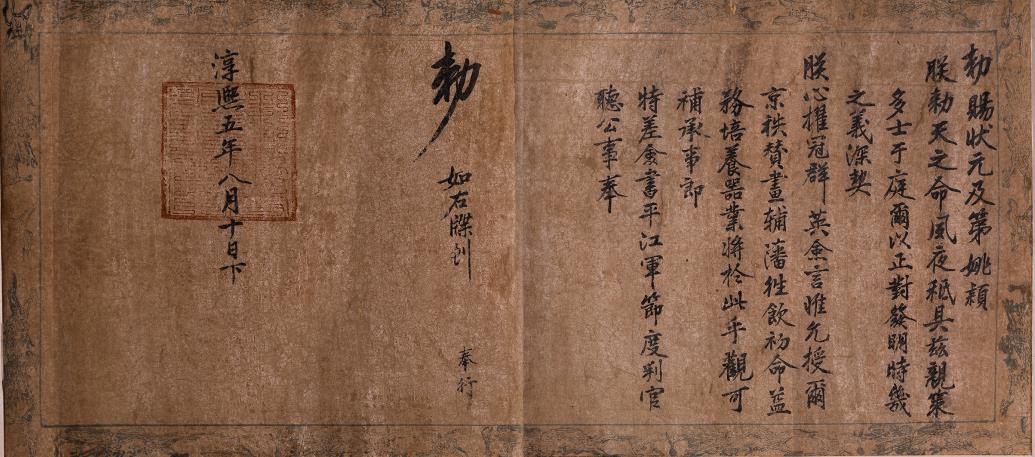 勑賜状元及第姚頴
朕勑天之命夙夜秪具兹親策
多士于庭爾以正對發明時幾
之義深契
朕心擢冠群英僉言惟允授爾
京秩賛畫輔藩徃飲初命益
務培養器業將於此乎觀可
補承事郎
特差僉書平江軍節度判官
聽公事奉
勑
如右牒到
奉行
淳熙五年八月十日下